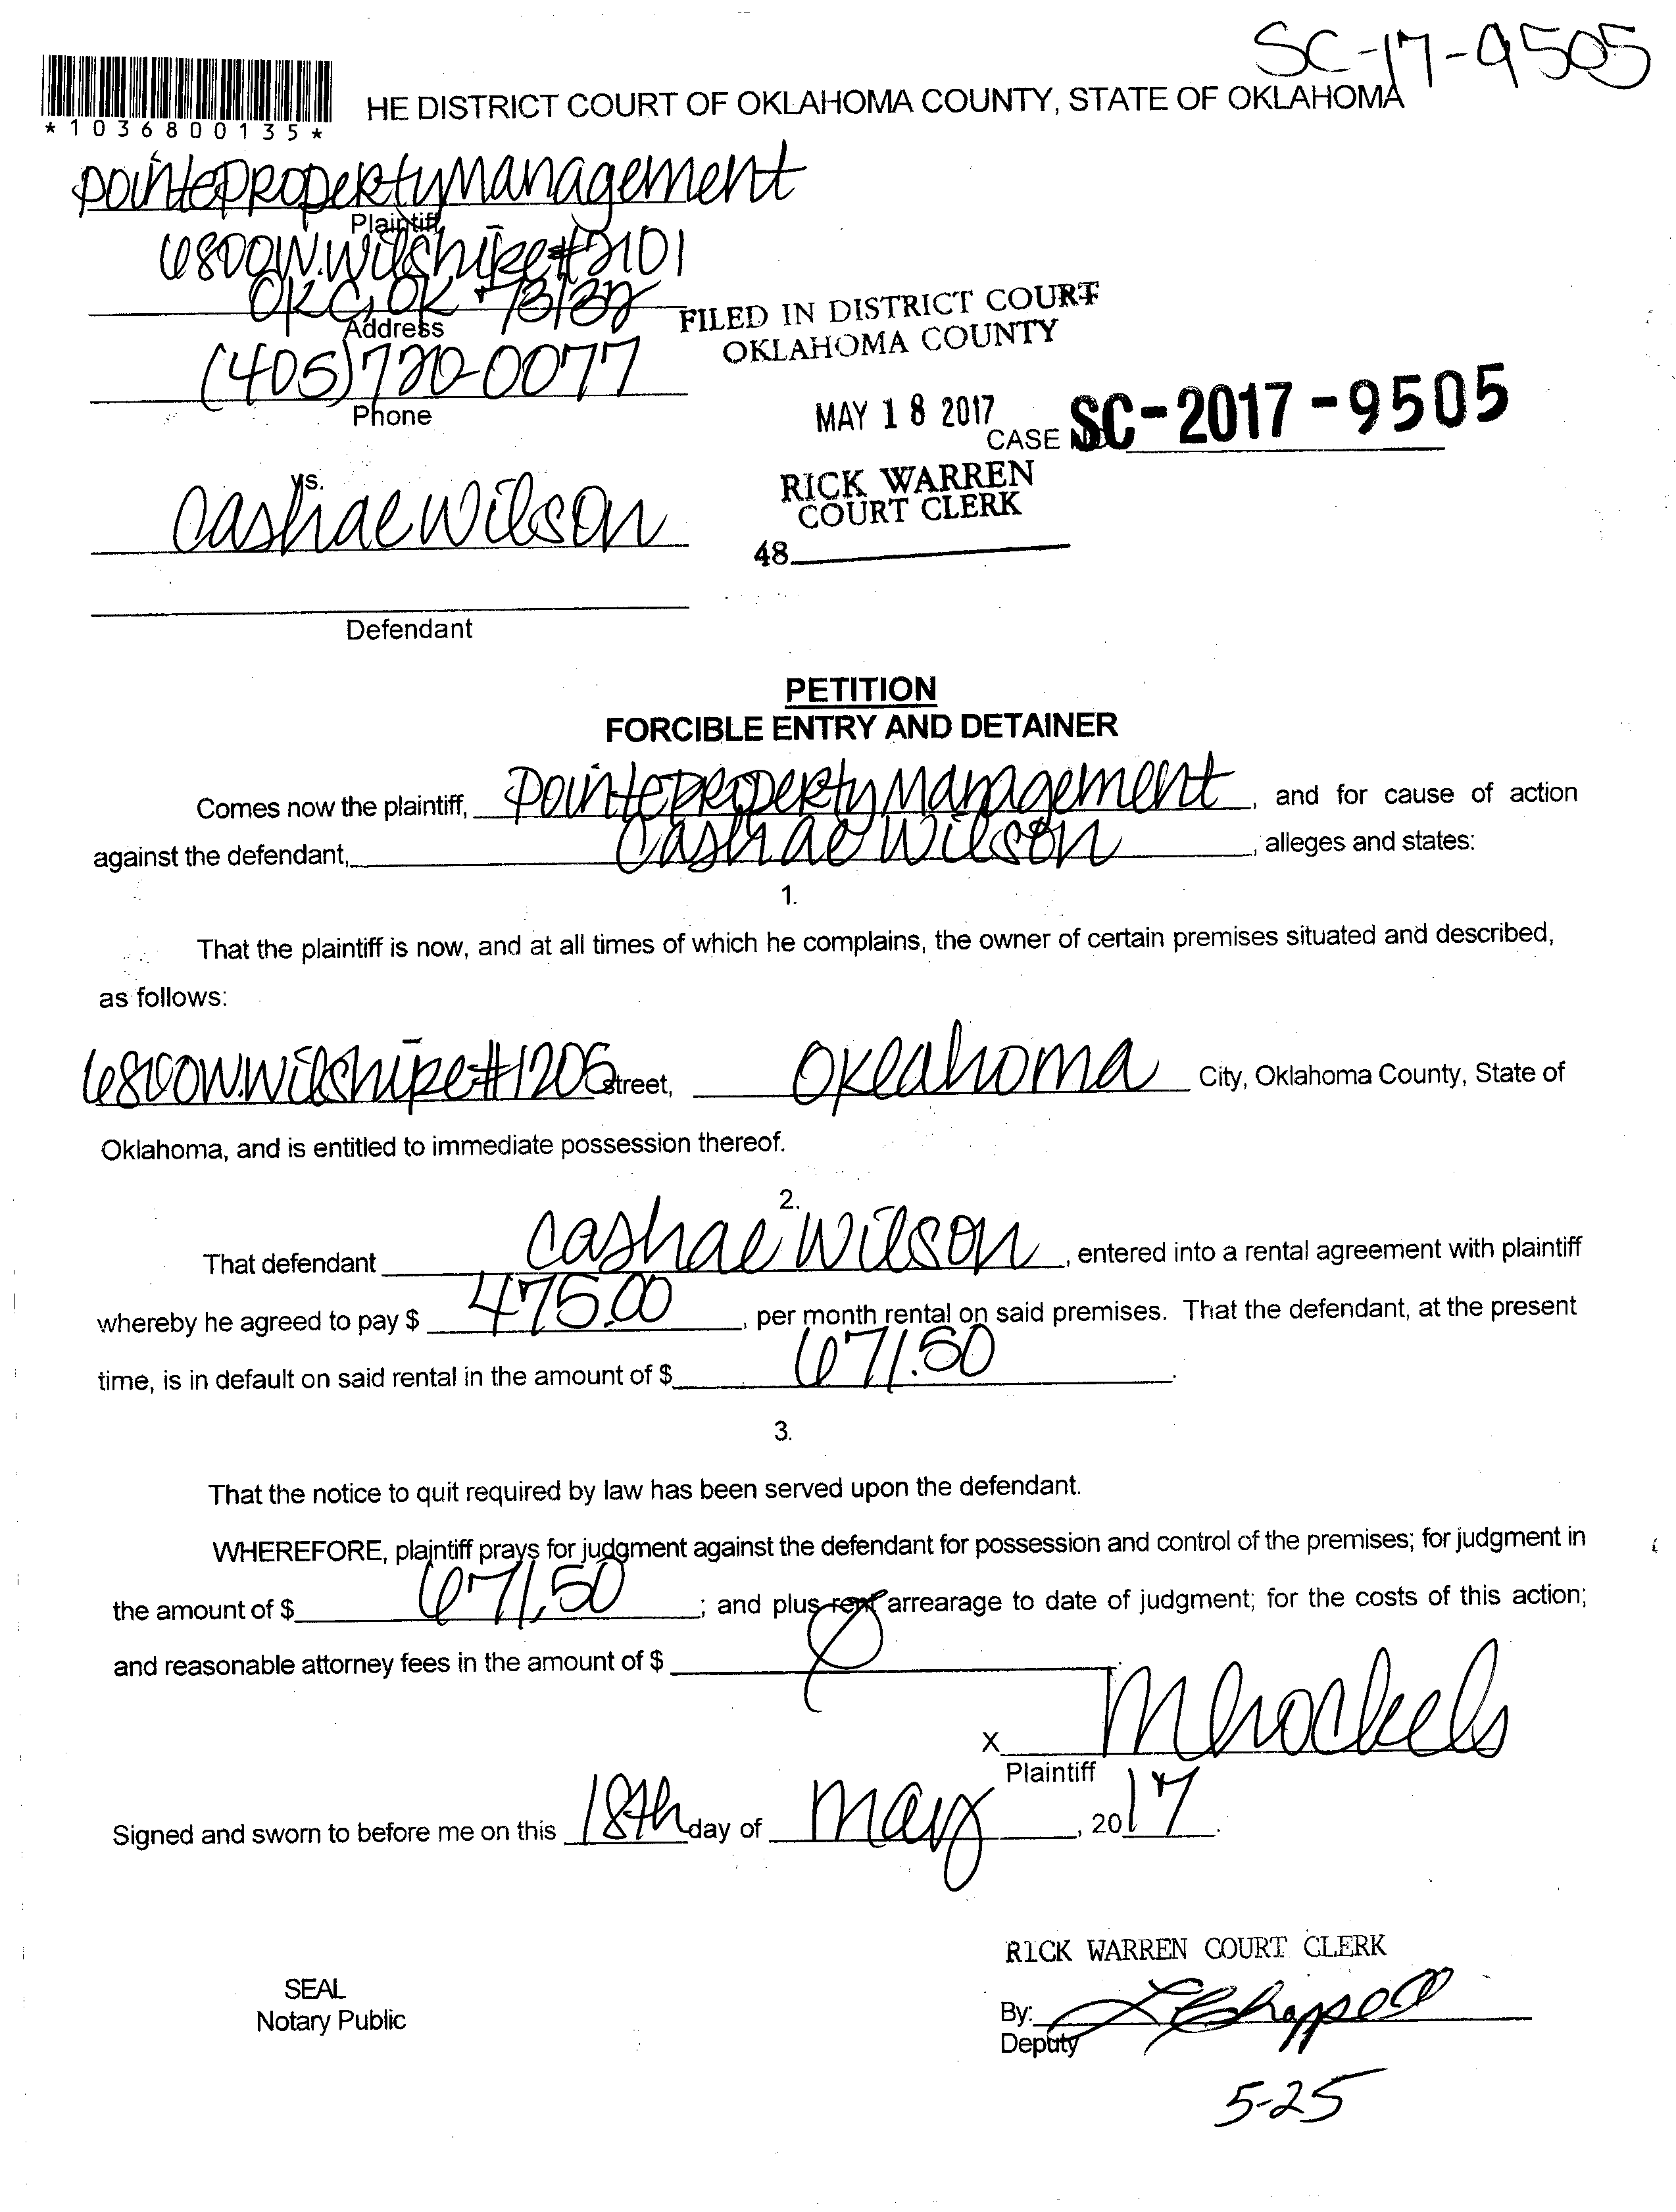 SC-17-9505
*1036800135*
HE DISTRICT COURT OF OKLAHOMA COUNTY, STATE OF OKLAHOMA
Pointe Property Management
Plaintiff
6800 W. Wilshire #2101
OKC, OK 73132
Address
FILED IN DISTRICT COURT
OKLAHOMA COUNTY
(405) 720-0077
Phone
MAY 18 2017
CASE NO SC-2017-9505
vs.
RICK WARREN
COURT CLERK
Cashae Wilson
48
Defendant
PETITION
FORCIBLE ENTRY AND DETAINER
Comes now the plaintiff, Pointe Property Management, and for cause of action
against the defendant, Cashae Wilson, alleges and states:
1.
That the plaintiff is now, and at all times of which he complains, the owner of certain premises situated and described,
as follows:
6800 W. Wilshire #1205 street, Oklahoma City, Oklahoma County, State of
Oklahoma, and is entitled to immediate possession thereof.
2.
That defendant Cashae Wilson, entered into a rental agreement with plaintiff
whereby he agreed to pay $ 475.00, per month rental on said premises. That the defendant, at the present
time, is in default on said rental in the amount of $ 671.50.
3.
That the notice to quit required by law has been served upon the defendant.
WHEREFORE, plaintiff prays for judgment against the defendant for possession and control of the premises; for judgment in
the amount of $ 671.50; and plus rent arrearage to date of judgment; for the costs of this action;
and reasonable attorney fees in the amount of $
X
Plaintiff
Signed and sworn to before me on this 18th day of May, 2017.
RICK WARREN COURT CLERK
SEAL
Notary Public
By:
Deputy
5-25